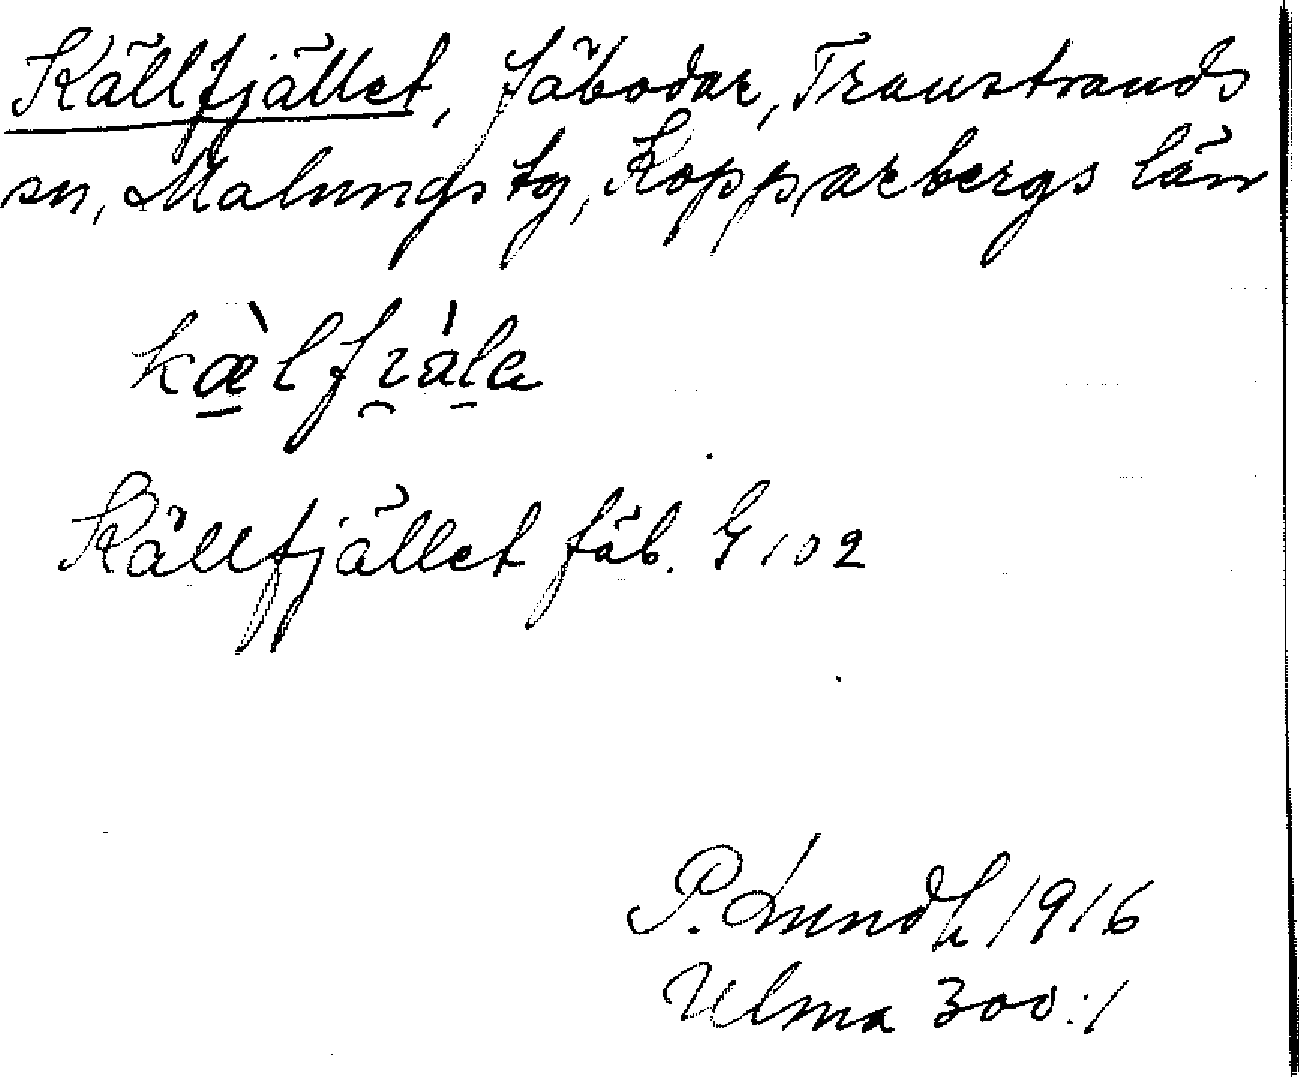 Källfjället, fäbodar, Transtrands
sn, Malungs tg, Kopparbergs län
Källfjället fäb. G 102
P. Lundh 1916
Ulma 300:1